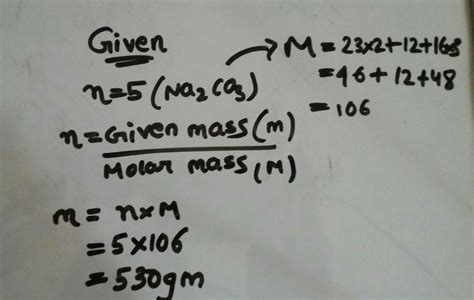 Given
n=5 (Na2CO3) → M = 23x2+12+16x3
= 46+12+48
= 106
n = Given mass (m)
Molar mass (M)
m = n x M
= 5 x 106
= 530gm